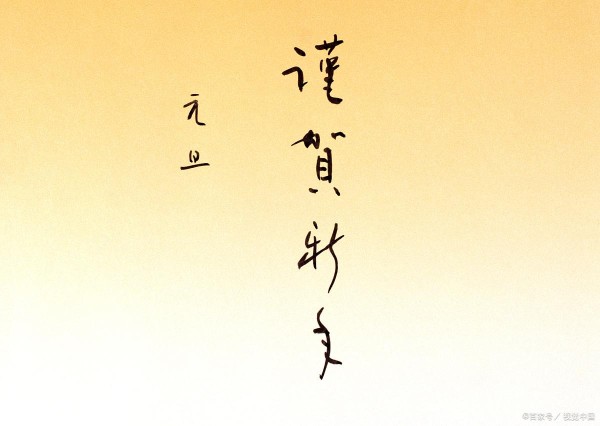 謹賀新年
元旦
©百家号／视觉中国